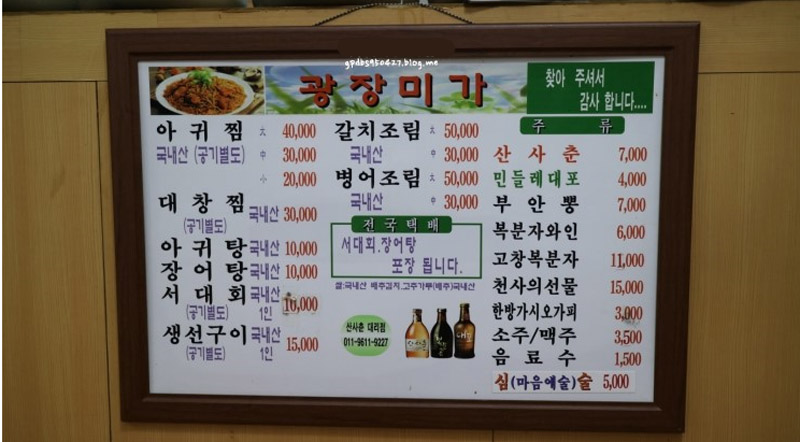 gpdbs950427.blog.me
광장미가
찾아 주셔서
감사 합니다....
아귀찜 大 40,000
국내산 (공기별도) 中 30,000
小 20,000
대창찜 국내산 30,000
(공기별도)
아귀탕 국내산 10,000
장어탕 국내산 10,000
서대회 국내산 1인 10,000
(공기별도)
생선구이 국내산 1인 15,000
(공기별도)
갈치조림 大 50,000
국내산 中 30,000
병어조림 大 50,000
국내산 中 30,000
전국택배
서대회.장어탕
포장 됩니다.
쌀:국내산 배추김치.고추가루(배추)국내산
산사춘 대리점
011-9611-9227
주 류
산사춘 7,000
민들레대포 4,000
부안뽕 7,000
복분자와인 6,000
고창복분자 11,000
천사의선물 15,000
한방가시오가피 3,000
소주/맥주 3,500
음료수 1,500
심(마음예술)술 5,000